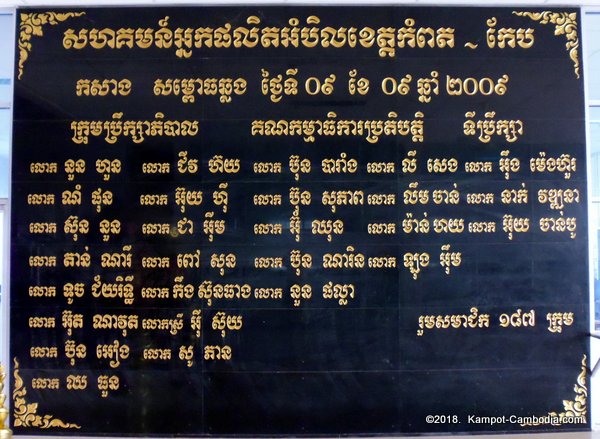 សហគមន៍អ្នកផលិតអំបិលខេត្តកំពត ~ កែប
កសាង សម្ពោធឆ្លង ថ្ងៃទី ០៩ ខែ ០៩ ឆ្នាំ ២០០៩
ក្រុមប្រឹក្សាភិបាល គណកម្មាធិការប្រតិបត្តិ ទីប្រឹក្សា
លោក នួន ហួន លោក ជីវ ហ៊យ លោក ប៊ុន បារាំង លោក លី សេង លោក អ៊ឹង ម៉េងហ៊ួរ
លោក ណំ ផុន លោក អ៊ុយ ហ៊ី លោក ប៊ុន សុភាព លោក លឹម ចាន់ លោក ទាក់ វឌ្ឍនា
លោក ស៊ុន នួន លោក ជា អ៊ឹម លោក អ៊ឹ ឈុន លោក ម៉ាន់ ហយ លោក អ៊ុយ ចាន់បូ
លោក តាន់ ណារី លោក ពៅ សុន លោក ប៊ុន ណារិន លោក ឡុង អ៊ឹម
លោក ទូច ជ័យរិទ្ធី លោក កឹង ស៊ុនធាង លោក នួន ផល្លា
លោក អ៊ុត ណាវុត លោកស្រី អ៊ី ស៊ុយ រួមសមាជិក ១៨៧ ក្រុម
លោក ប៊ុន អៀង លោក សូ ភាន
លោក ឈ ធួន
©2018. Kampot-Cambodia.com